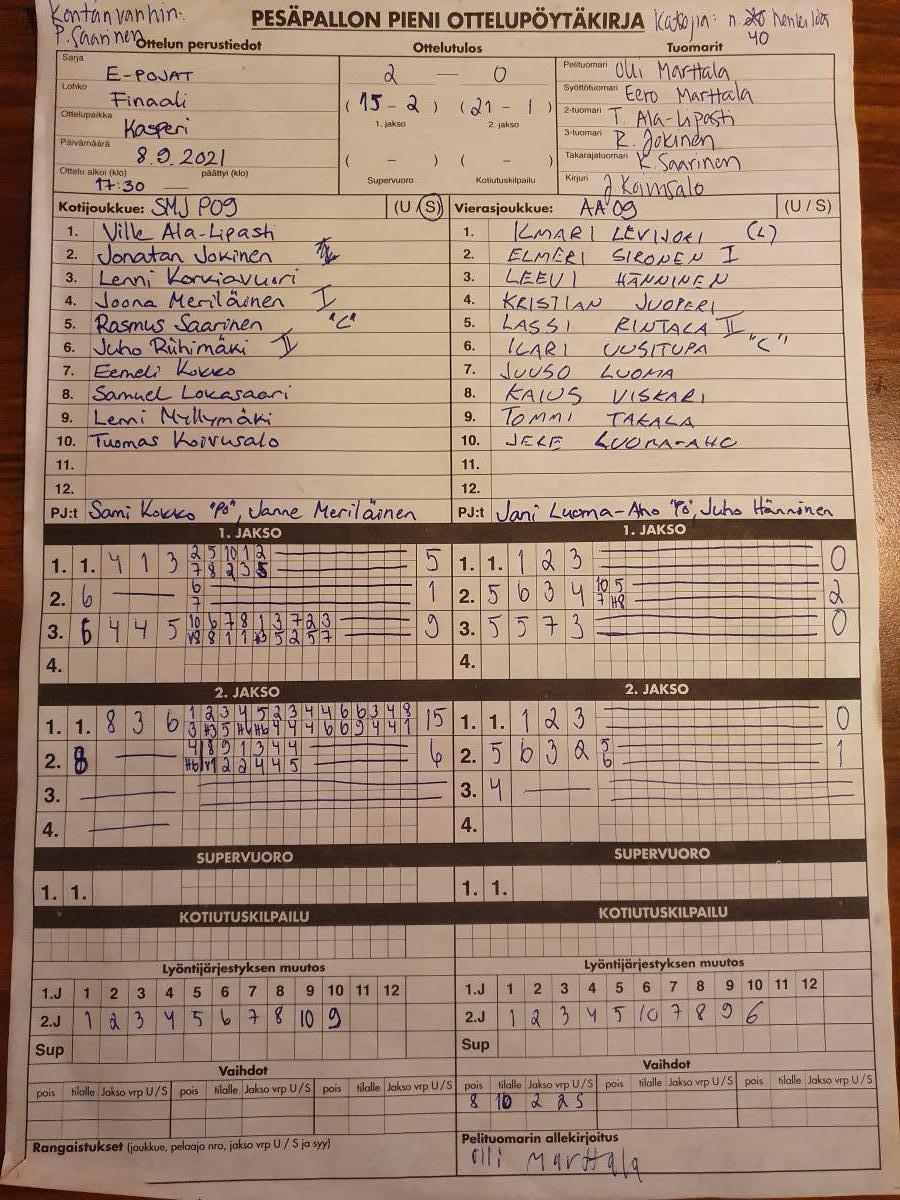 Kentänvanhin:
P. Saarinen
PESÄPALLON PIENI OTTELUPÖYTÄKIRJA
Katsojia: n. 40 henkilöä
Ottelun perustiedot
Sarja
E-POJAT
Lohko
Finaali
Ottelupaikka
Kasperi
Päivämäärä
8.9.2021
Ottelu alkoi (klo) päättyi (klo)
17:30 —
Ottelutulos
2 — 0
(15 - 2) (21 - 1)
1. jakso 2. jakso
( - ) ( - )
Supervuoro Kotiutuskilpailu
Tuomarit
Pelituomari Olli Marttala
Syöttötuomari Eero Marttala
2-tuomari T. Ala-Lipasti
3-tuomari R. Jokinen
Takarajatuomari K. Saarinen
Kirjuri J Koivusalo
Kotijoukkue: SMJ P09 (U / S)
1. Ville Ala-Lipasti
2. Jonatan Jokinen
3. Lenni Korkiavuori
4. Joona Meriläinen I
5. Rasmus Saarinen "C"
6. Juho Riihimäki II
7. Eemeli Kokko
8. Samuel Lokasaari
9. Lenni Myllymäki
10. Tuomas Koivusalo
11.
12.
PJ:t Sami Kokko "PÖ", Janne Meriläinen
Vierasjoukkue: AA 09 (U / S)
1. ILMARI LEVIJOKI (L)
2. ELMERI SIRONEN I
3. LEEVI HÄNNINEN
4. KRISTIAN JUOPERI
5. LASSI RINTALA II
6. ILARI UUSITUPA "C"
7. JUUSO LUOMA
8. KAIUS VISKARI
9. TOMMI TAKALA
10. JERE LUOMA-AHO
11.
12.
PJ:t Jani Luoma-Aho "PÖ", Juho Hänninen
1. JAKSO
1. 1. 4 1 3 2 5 10 1 2 5
7 8 2 3 5
2. 6 — 6 1
7
3. 6 4 4 5 10 6 7 8 1 3 7 2 3 9
4.
1. JAKSO
1. 1. 1 2 3 0
2. 5 6 3 4 10 5 2
7 H8
3. 5 5 7 3 0
4.
2. JAKSO
1. 1. 8 3 6 1 2 3 4 5 2 3 4 4 6 6 3 4 8 15
3 H3 5 H6 H6 4 4 4 6 6 9 4 4 1
2. 8 — 4 8 9 1 3 4 4 6
3. —
4. —
2. JAKSO
1. 1. 1 2 3 0
2. 5 6 3 2 5 1
6
3. 4 —
4.
SUPERVUORO
1. 1.
SUPERVUORO
1. 1.
KOTIUTUSKILPAILU
KOTIUTUSKILPAILU
Lyöntijärjestyksen muutos
1.J 1 2 3 4 5 6 7 8 9 10 11 12
2.J 1 2 3 4 5 6 7 8 10 9
Sup
Lyöntijärjestyksen muutos
1.J 1 2 3 4 5 6 7 8 9 10 11 12
2.J 1 2 3 4 5 10 7 8 9 6
Sup
Vaihdot
pois tilalle Jakso vrp U / S pois tilalle Jakso vrp U / S pois tilalle Jakso vrp U / S
Vaihdot
pois tilalle Jakso vrp U / S pois tilalle Jakso vrp U / S pois tilalle Jakso vrp U / S
8 10 2 2 S
Rangaistukset (joukkue, pelaaja nro, jakso vrp U / S ja syy)
Pelituomarin allekirjoitus
Olli Marttala